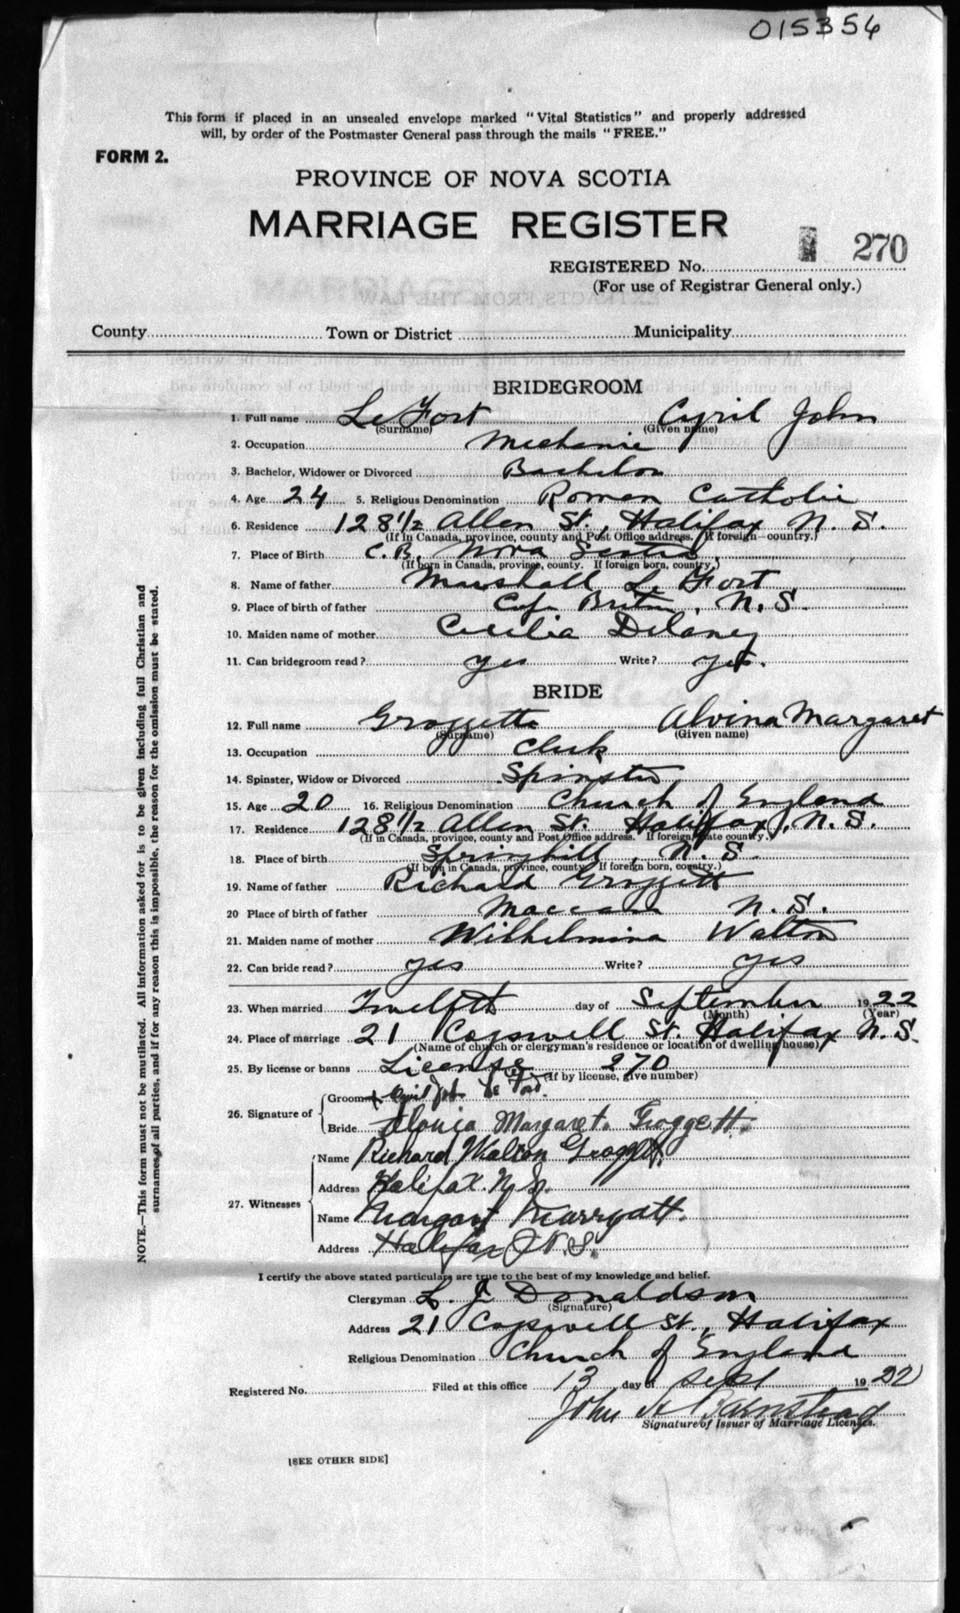 015354
This form if placed in an unsealed envelope marked "Vital Statistics" and properly addressed
will, by order of the Postmaster General pass through the mails "FREE."
FORM 2.
PROVINCE OF NOVA SCOTIA
MARRIAGE REGISTER
REGISTERED No. 270
(For use of Registrar General only.)
County Town or District Municipality
BRIDEGROOM
1. Full name Le Fort Cyril John
(Surname) (Given name)
2. Occupation Mechanic
3. Bachelor, Widower or Divorced Bachelor
4. Age 24 5. Religious Denomination Roman Catholic
6. Residence 128 1/2 Allen St., Halifax N. S.
(If in Canada, province, county and Post Office address. If foreign country.)
7. Place of Birth C.B. Nova Scotia
(If born in Canada, province, county. If foreign born, country.)
8. Name of father Marshall Le Fort
9. Place of birth of father Cape Breton, N.S.
10. Maiden name of mother Cecilia Delaney
11. Can bridegroom read? yes Write? yes.
BRIDE
12. Full name Groggett Alvina Margaret
(Surname) (Given name)
13. Occupation Clerk
14. Spinster, Widow or Divorced Spinster
15. Age 20 16. Religious Denomination Church of England
17. Residence 128 1/2 Allen St. Halifax, N.S.
(If in Canada, province, county and Post Office address. If foreign state country.)
18. Place of birth Springhill, N.S.
(If born in Canada, province, county. If foreign born, country.)
19. Name of father Richard Groggett
20 Place of birth of father Maccan N.S.
21. Maiden name of mother Wilhelmina Walton
22. Can bride read? yes Write? yes
23. When married Twelfth day of September 1922
(Month) (Year)
24. Place of marriage 21 Cogswell St. Halifax N.S.
(Name of church or clergyman's residence or location of dwelling house)
25. By license or banns License 270
(If by license, give number)
26. Signature of Groom Cyril Le Fort
Bride Margaret Groggett.
27. Witnesses Name Richard Walton Groggett.
Address Halifax N.S.
Name Margaret Marryatt.
Address Halifax N.S.
I certify the above stated particulars are true to the best of my knowledge and belief.
Clergyman L. J. Donaldson
(Signature)
Address 21 Cogswell St., Halifax
Religious Denomination Church of England
Registered No. Filed at this office 13 day of Sept 1922
John
Signature of Issuer of Marriage Licenses.
[SEE OTHER SIDE]
NOTE.—This form must not be mutilated. All information asked for is to be given including full Christian and
surnames of all parties, and if for any reason this is impossible, the reason for the omission must be stated.